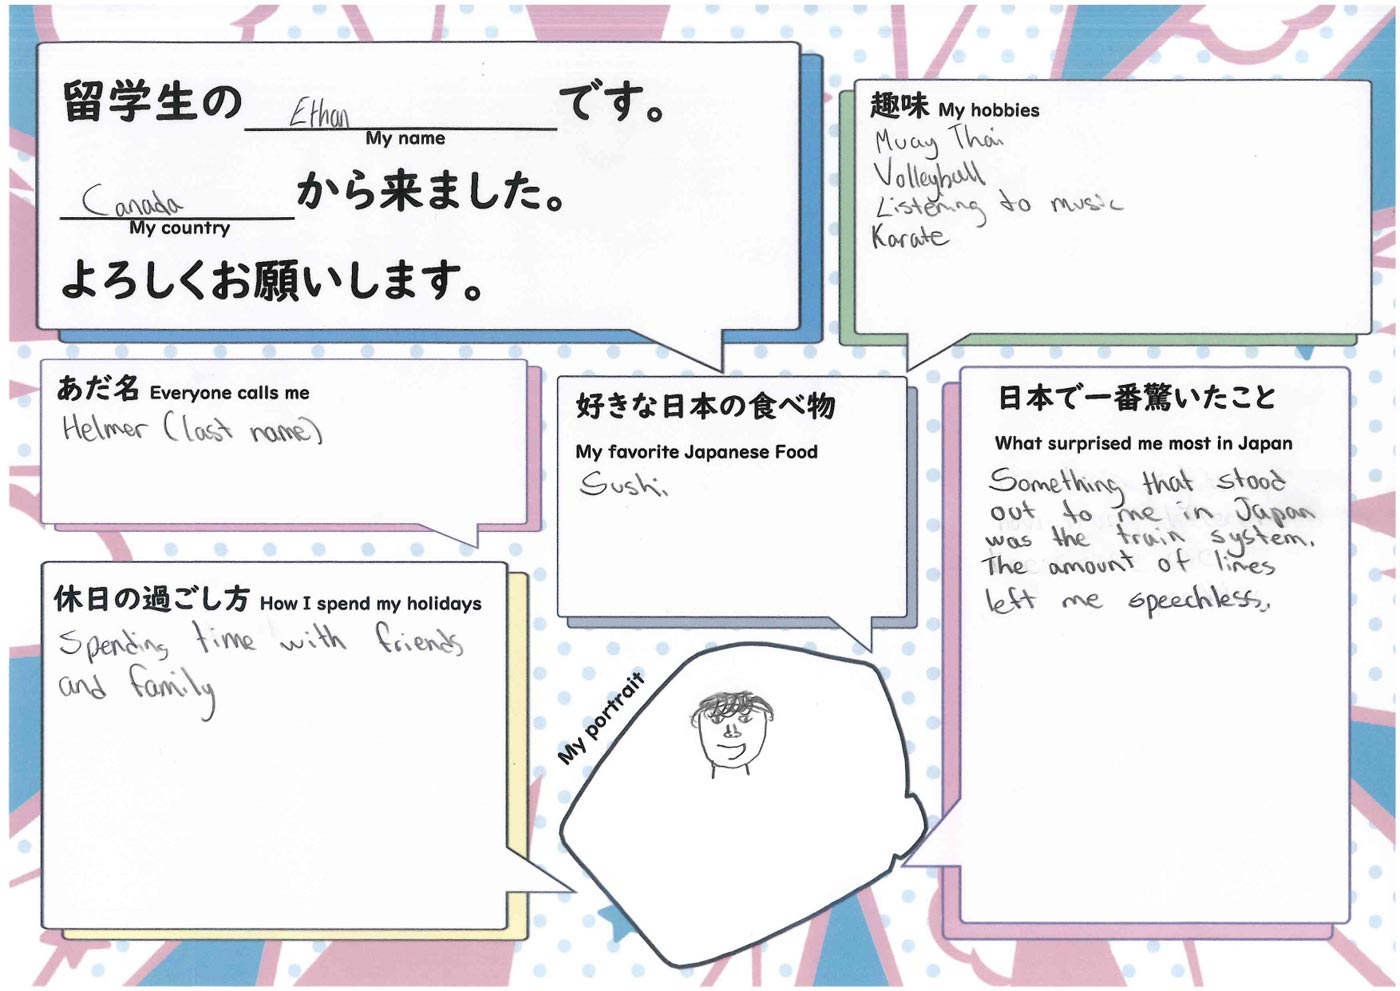 留学生の Ethan です。
My name
Canada から来ました。
My country
よろしくお願いします。
趣味 My hobbies
Muay Thai
Volleyball
Listening to music
Karate
あだ名 Everyone calls me
Helmer (last name)
好きな日本の食べ物
My favorite Japanese Food
Sushi.
日本で一番驚いたこと
What surprised me most in Japan
Something that stood
out to me in Japan
was the train system.
The amount of lines
left me speechless.
休日の過ごし方 How I spend my holidays
Spending time with friends
and family
My portrait